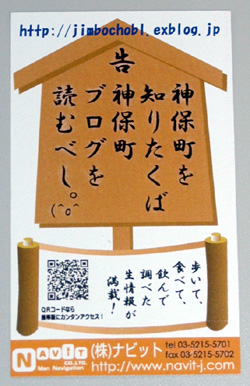 http://jimbochobl.exblog.jp
告
神保町を
知りたくば
神保町
ブログを
読むべし。
(^o^
歩いて、
食べて、
飲んで
調べた
生情報が
満載!
QRコードなら
携帯版にカンタンアクセス!
NAVIT
CO.,LTD.
Man Navigation
(株)ナビット
http://www.navit-j.com
tel 03-5215-5701
fax 03-5215-5702